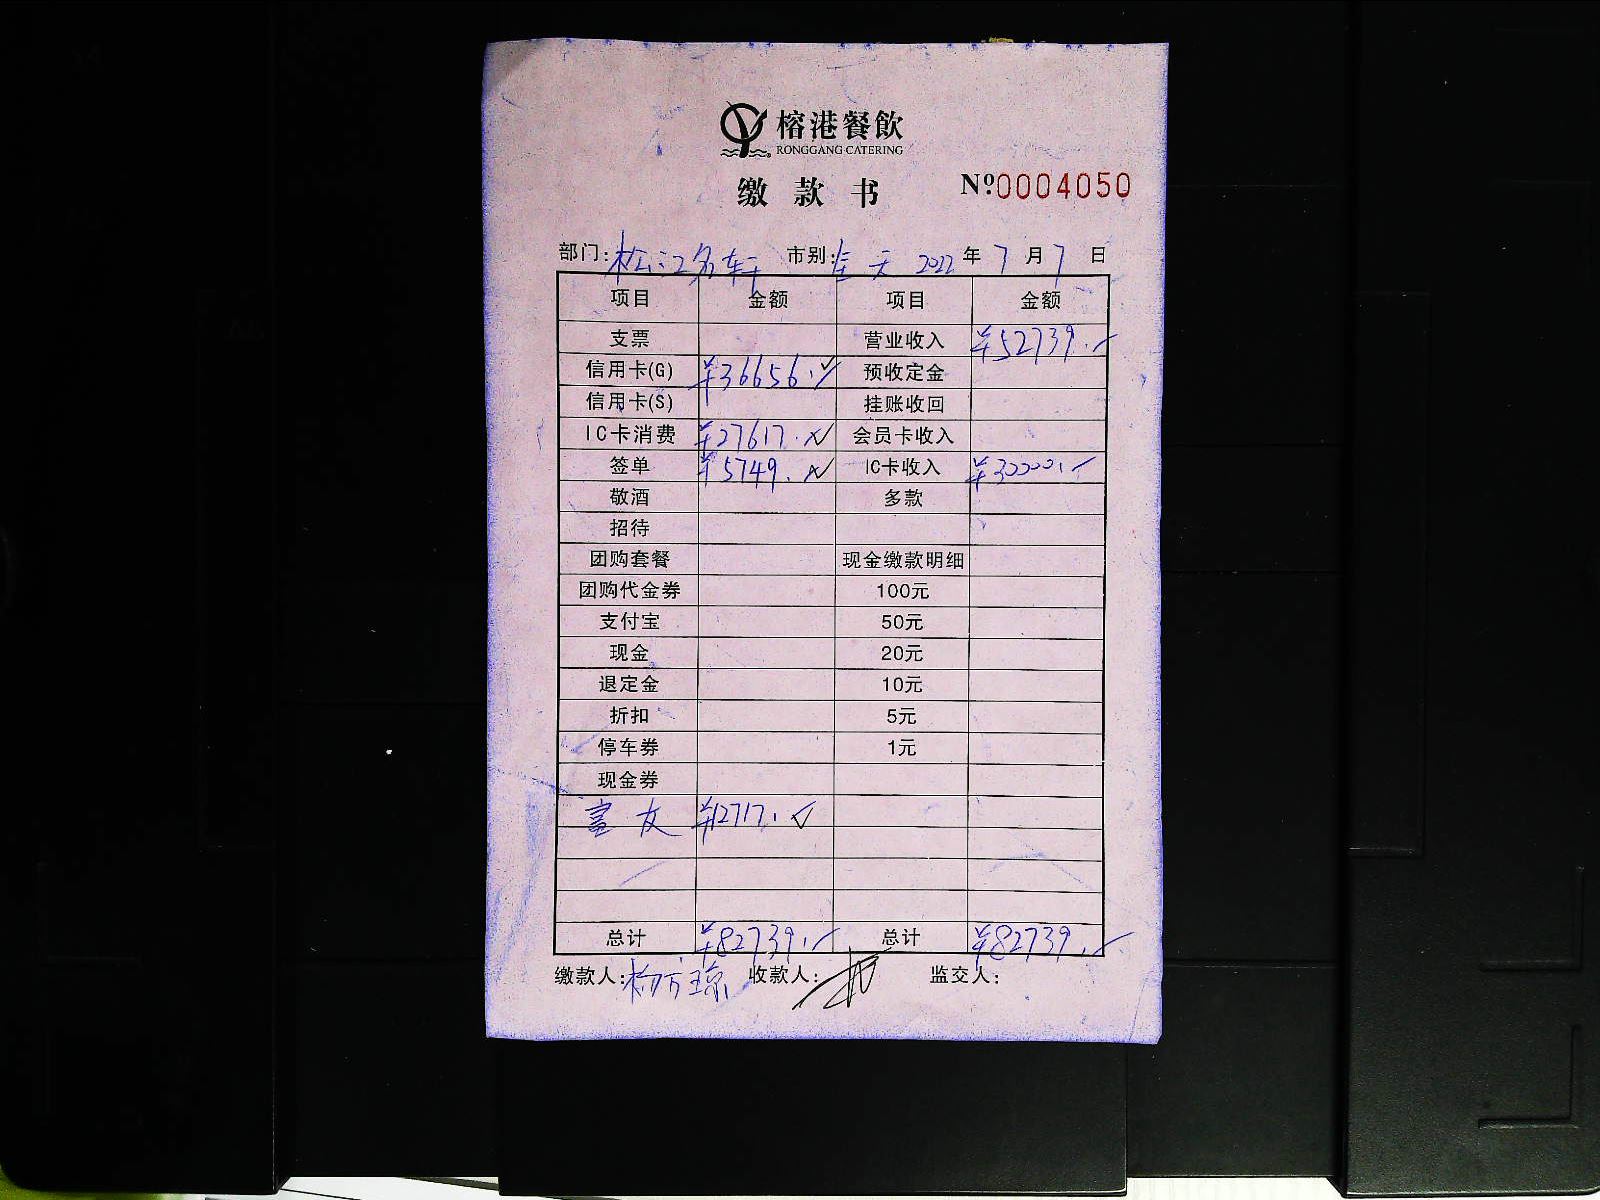 榕港餐飲
RONGGANG CATERING
缴款书 Nº0004050
部门:松江名轩 市别:全天 2022年7月7日
项目 金额 项目 金额
支票 营业收入 ¥52739.
信用卡(G) ¥36656. 预收定金
信用卡(S) 挂账收回
IC卡消费 ¥27617. 会员卡收入
签单 ¥5749. IC卡收入 ¥30000.
敬酒 多款
招待
团购套餐 现金缴款明细
团购代金券 100元
支付宝 50元
现金 20元
退定金 10元
折扣 5元
停车券 1元
现金券
富友 ¥12717.
总计 ¥82739. 总计 ¥82739.
缴款人:杨方琼 收款人: 监交人: